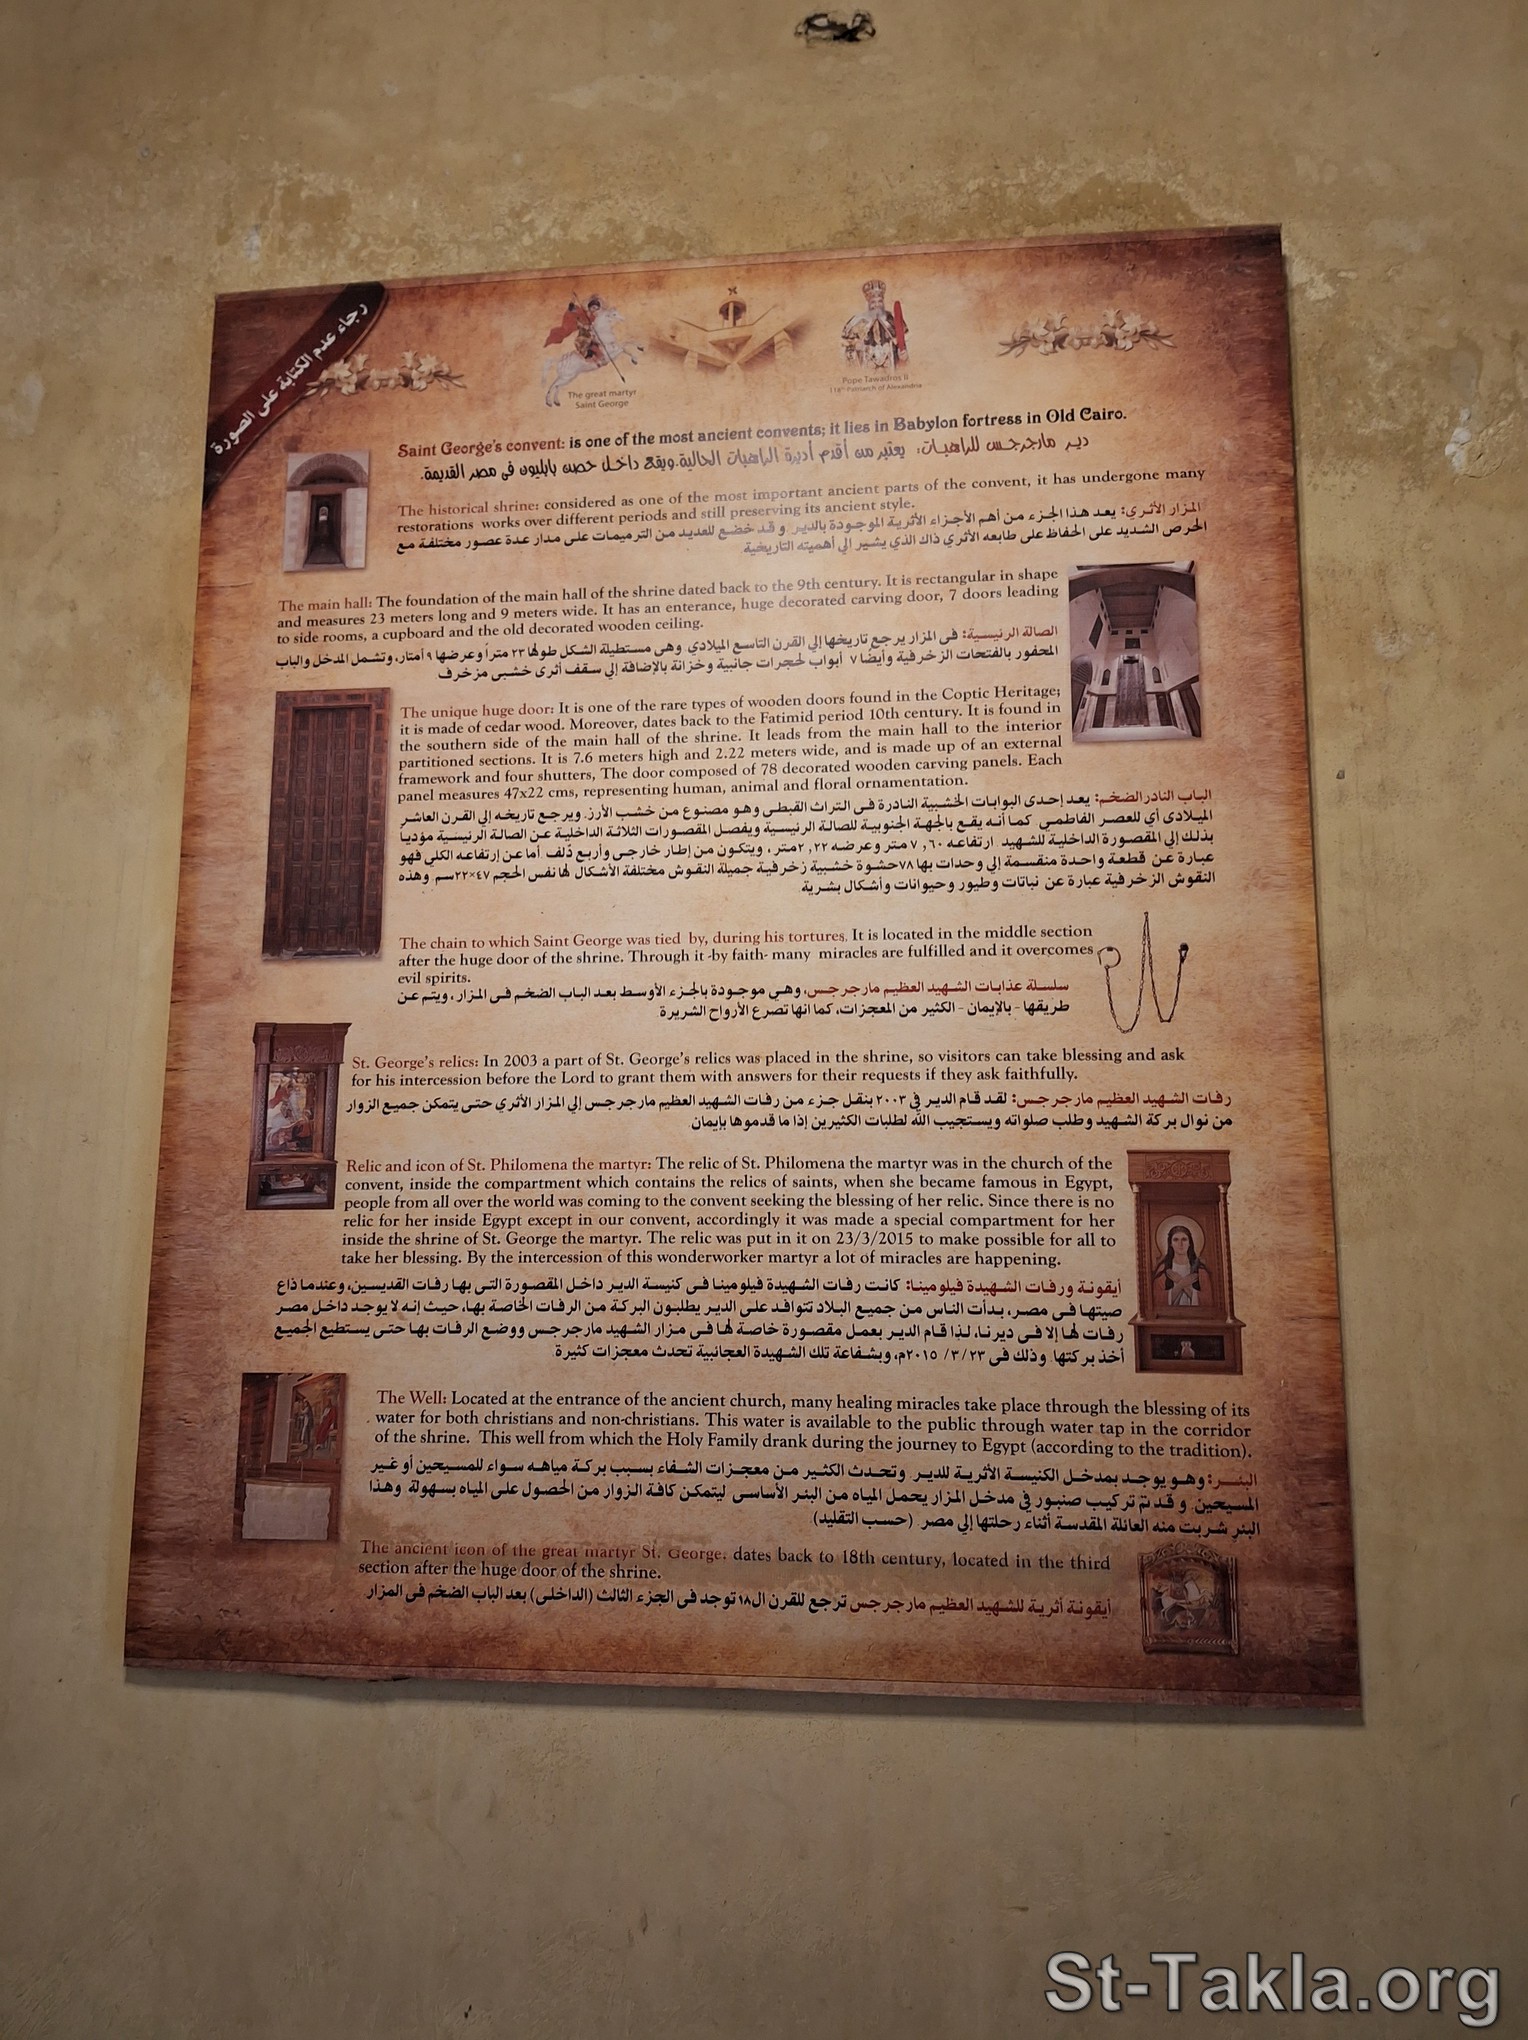 رجاء عدم الكتابة على الصورة
The great martyr
Saint George
Pope Tawadros II
118th Patriarch of Alexandria
Saint George's convent: is one of the most ancient convents; it lies in Babylon fortress in Old Cairo.
دير مارجرجس للراهبات: يعتبر من أقدم أديرة الراهبات الحالية ويقع داخل حصن بابليون فى مصر القديمة.
The historical shrine: considered as one of the most important ancient parts of the convent, it has undergone many
restorations works over different periods and still preserving its ancient style.
المزار الأثري: يعد هذا الجزء من أهم الأجزاء الأثرية الموجودة بالدير و قد خضع للعديد من الترميمات على مدار عدة عصور مختلفة مع
الحرص الشديد على الحفاظ على طابعه الأثري ذاك الذي يشير الي أهميته التاريخية
The main hall: The foundation of the main hall of the shrine dated back to the 9th century. It is rectangular in shape
and measures 23 meters long and 9 meters wide. It has an enterance, huge decorated carving door, 7 doors leading
to side rooms, a cupboard and the old decorated wooden ceiling.
الصالة الرئيسية: فى المزار يرجع تاريخها إلي القرن التاسع الميلادي وهى مستطيلة الشكل طولها ٢٣ متراً وعرضها ٩ أمتار، وتشمل المدخل والباب
المحفور بالفتحات الزخرفية وأيضًا ٧ أبواب لحجرات جانبية وخزانة بالإضافة إلي سقف أثرى خشبى مزخرف
The unique huge door: It is one of the rare types of wooden doors found in the Coptic Heritage;
it is made of cedar wood. Moreover, dates back to the Fatimid period 10th century. It is found in
the southern side of the main hall of the shrine. It leads from the main hall to the interior
partitioned sections. It is 7.6 meters high and 2.22 meters wide, and is made up of an external
framework and four shutters, The door composed of 78 decorated wooden carving panels. Each
panel measures 47x22 cms, representing human, animal and floral ornamentation.
الباب النادر الضخم: يعد إحدى البوابات الخشبية النادرة فى التراث القبطى وهو مصنوع من خشب الأرز. ويرجع تاريخه إلي القرن العاشر
الميلادى أي للعصر الفاطمي كما أنه يقع بالجهة الجنوبية للصالة الرئيسية ويفصل المقصورات الثلاثة الداخلية عن الصالة الرئيسية مؤديا
بذلك إلي المقصورة الداخلية للشهيد ارتفاعه ٧,٦٠ متر وعرضه ٢,٢٢ متر، ويتكون من إطار خارجى وأربع ذُلف أما عن إرتفاعه الكلي فهو
عبارة عن قطعة واحدة منقسمة إلي وحدات بها ٧٨ حشوة خشبية زخرفية جميلة النقوش مختلفة الأشكال لها نفس الحجم ٤٧×٢٢سم وهذه
النقوش الزخرفية عبارة عن نباتات وطيور وحيوانات وأشكال بشرية
The chain to which Saint George was tied by, during his tortures. It is located in the middle section
after the huge door of the shrine. Through it -by faith- many miracles are fulfilled and it overcomes
evil spirits.
سلسلة عذابات الشهيد العظيم مارجرجس، وهي موجودة بالجزء الأوسط بعد الباب الضخم فى المزار، ويتم عن
طريقها - بالإيمان - الكثير من المعجزات، كما انها تصرع الأرواح الشريرة
St. George's relics: In 2003 a part of St. George's relics was placed in the shrine, so visitors can take blessing and ask
for his intercession before the Lord to grant them with answers for their requests if they ask faithfully.
رفات الشهيد العظيم مارجرجس: لقد قام الدير في ٢٠٠٣ بنقل جزء من رفات الشهيد العظيم مارجرجس إلي المزار الأثري حتى يتمكن جميع الزوار
من نوال بركة الشهيد وطلب صلواته ويستجيب الله لطلبات الكثيرين إذا ما قدموها بإيمان
Relic and icon of St. Philomena the martyr: The relic of St. Philomena the martyr was in the church of the
convent, inside the compartment which contains the relics of saints, when she became famous in Egypt,
people from all over the world was coming to the convent seeking the blessing of her relic. Since there is no
relic for her inside Egypt except in our convent, accordingly it was made a special compartment for her
inside the shrine of St. George the martyr. The relic was put in it on 23/3/2015 to make possible for all to
take her blessing. By the intercession of this wonderworker martyr a lot of miracles are happening.
أيقونة ورفات الشهيدة فيلومينا: كانت رفات الشهيدة فيلومينا فى كنيسة الدير داخل المقصورة التى بها رفات القديسين، وعندما ذاع
صيتها فى مصر، بدأت الناس من جميع البلاد تتوافد على الدير يطلبون البركة من الرفات الخاصة بها، حيث إنه لا يوجد داخل مصر
رفات لها إلا فى ديرنا، لذا قام الدير بعمل مقصورة خاصة لها فى مزار الشهيد مارجرجس ووضع الرفات بها حتى يستطيع الجميع
أخذ بركتها وذلك فى ٢٣ /٣ /٢٠١٥م، وبشفاعة تلك الشهيدة العجائبية تحدث معجزات كثيرة
The Well: Located at the entrance of the ancient church, many healing miracles take place through the blessing of its
water for both christians and non-christians. This water is available to the public through water tap in the corridor
of the shrine. This well from which the Holy Family drank during the journey to Egypt (according to the tradition).
البئر: وهو يوجد بمدخل الكنيسة الأثرية للدير وتحدث الكثير من معجزات الشفاء بسبب بركة مياهه سواء للمسيحين أو غير
المسيحين و قد تم تركيب صنبور في مدخل المزار يحمل المياه من البئر الأساسى ليتمكن كافة الزوار من الحصول على المياه بسهولة وهذا
البئر شربت منه العائلة المقدسة أثناء رحلتها إلي مصر (حسب التقليد)
The ancient icon of the great martyr St. George. dates back to 18th century, located in the third
section after the huge door of the shrine.
أيقونة أثرية للشهيد العظيم مارجرجس ترجع للقرن ال١٨ توجد فى الجزء الثالث (الداخلى) بعد الباب الضخم فى المزار
St-Takla.org